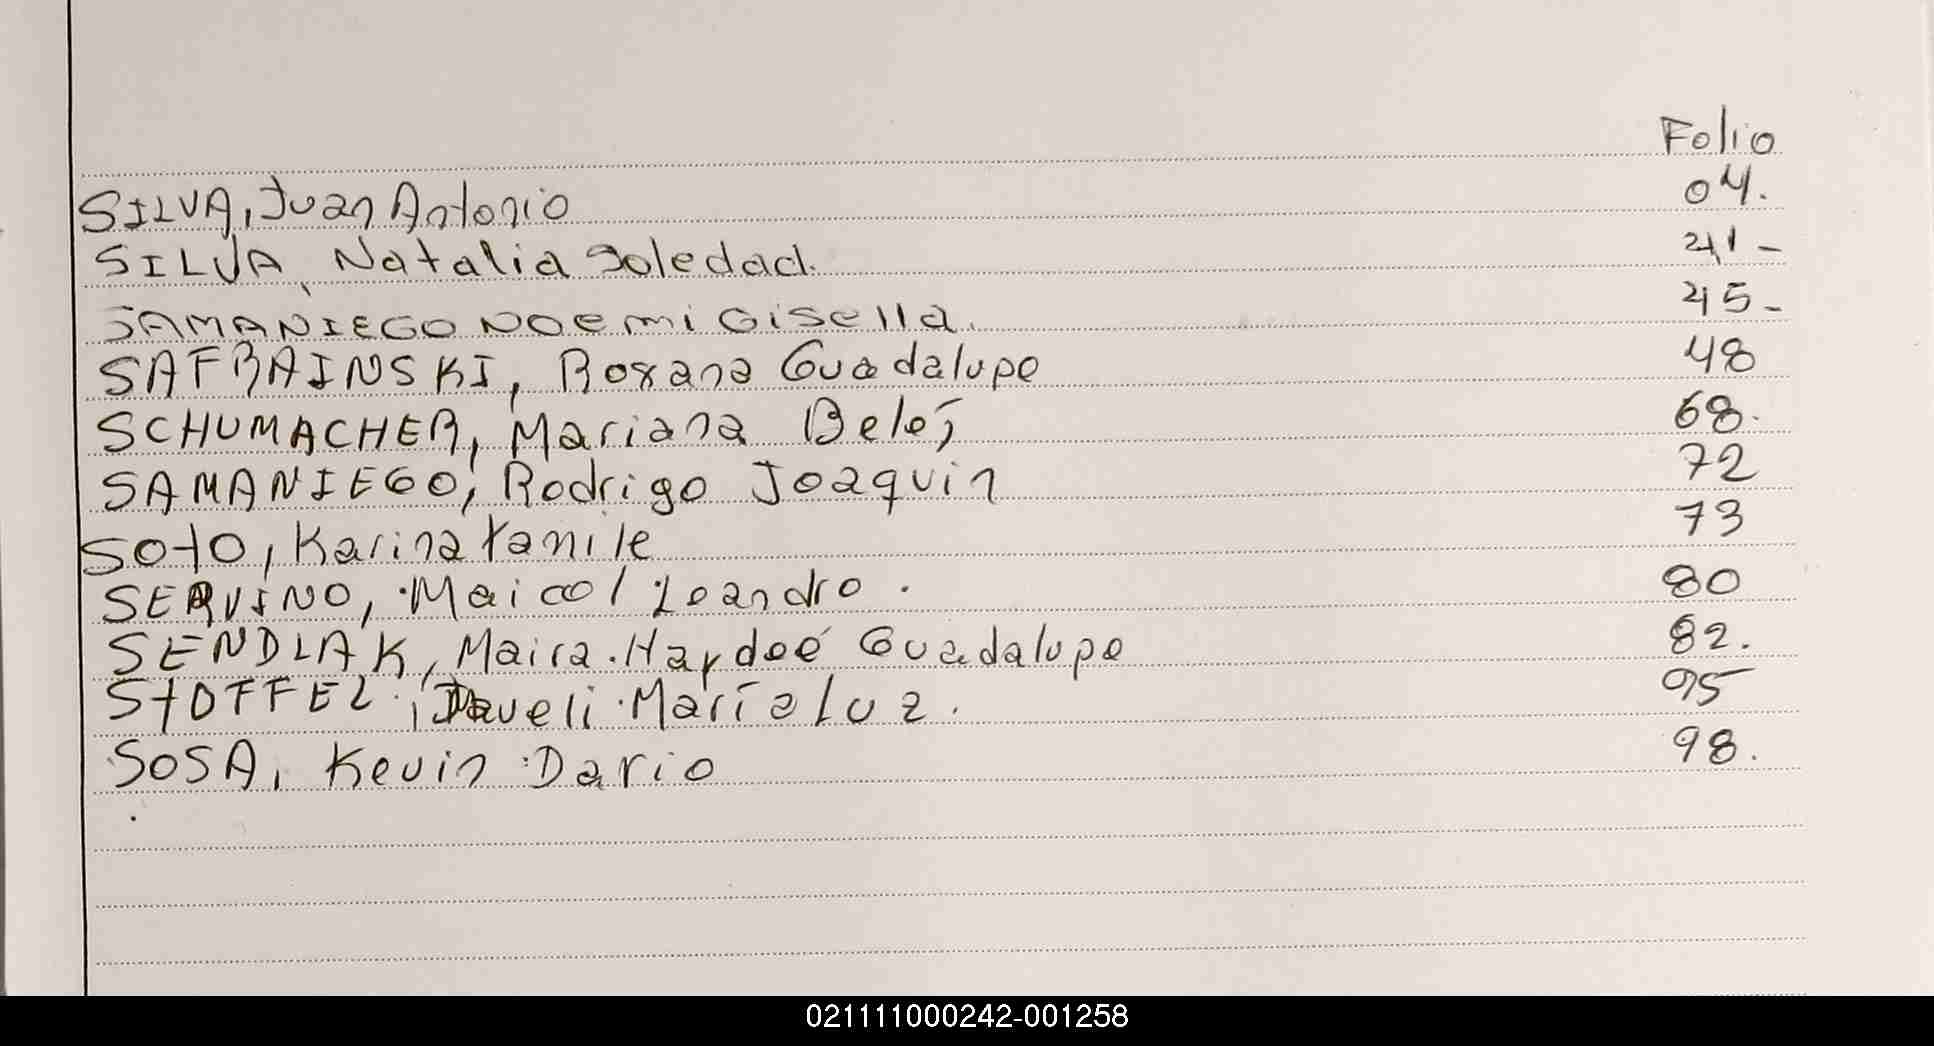 Folio
SILVA, Juan Antonio 04.
SILVA, Natalia Soledad. 41-
SAMANIEGO Noemi Gisella. 45-
SAFRAINSKI, Roxana Guadalupe 48
SCHUMACHER, Mariana Belén 68.
SAMANIEGO, Rodrigo Joaquin 72
SOTO, Karina Yamile 73
SERVINO, Maicol Leandro. 80
SENDLAK, Maira Haydeé Guadalupe 82.
STOFFEL, María luz. 95
SOSA, Kevin Dario 98.
021111000242-001258